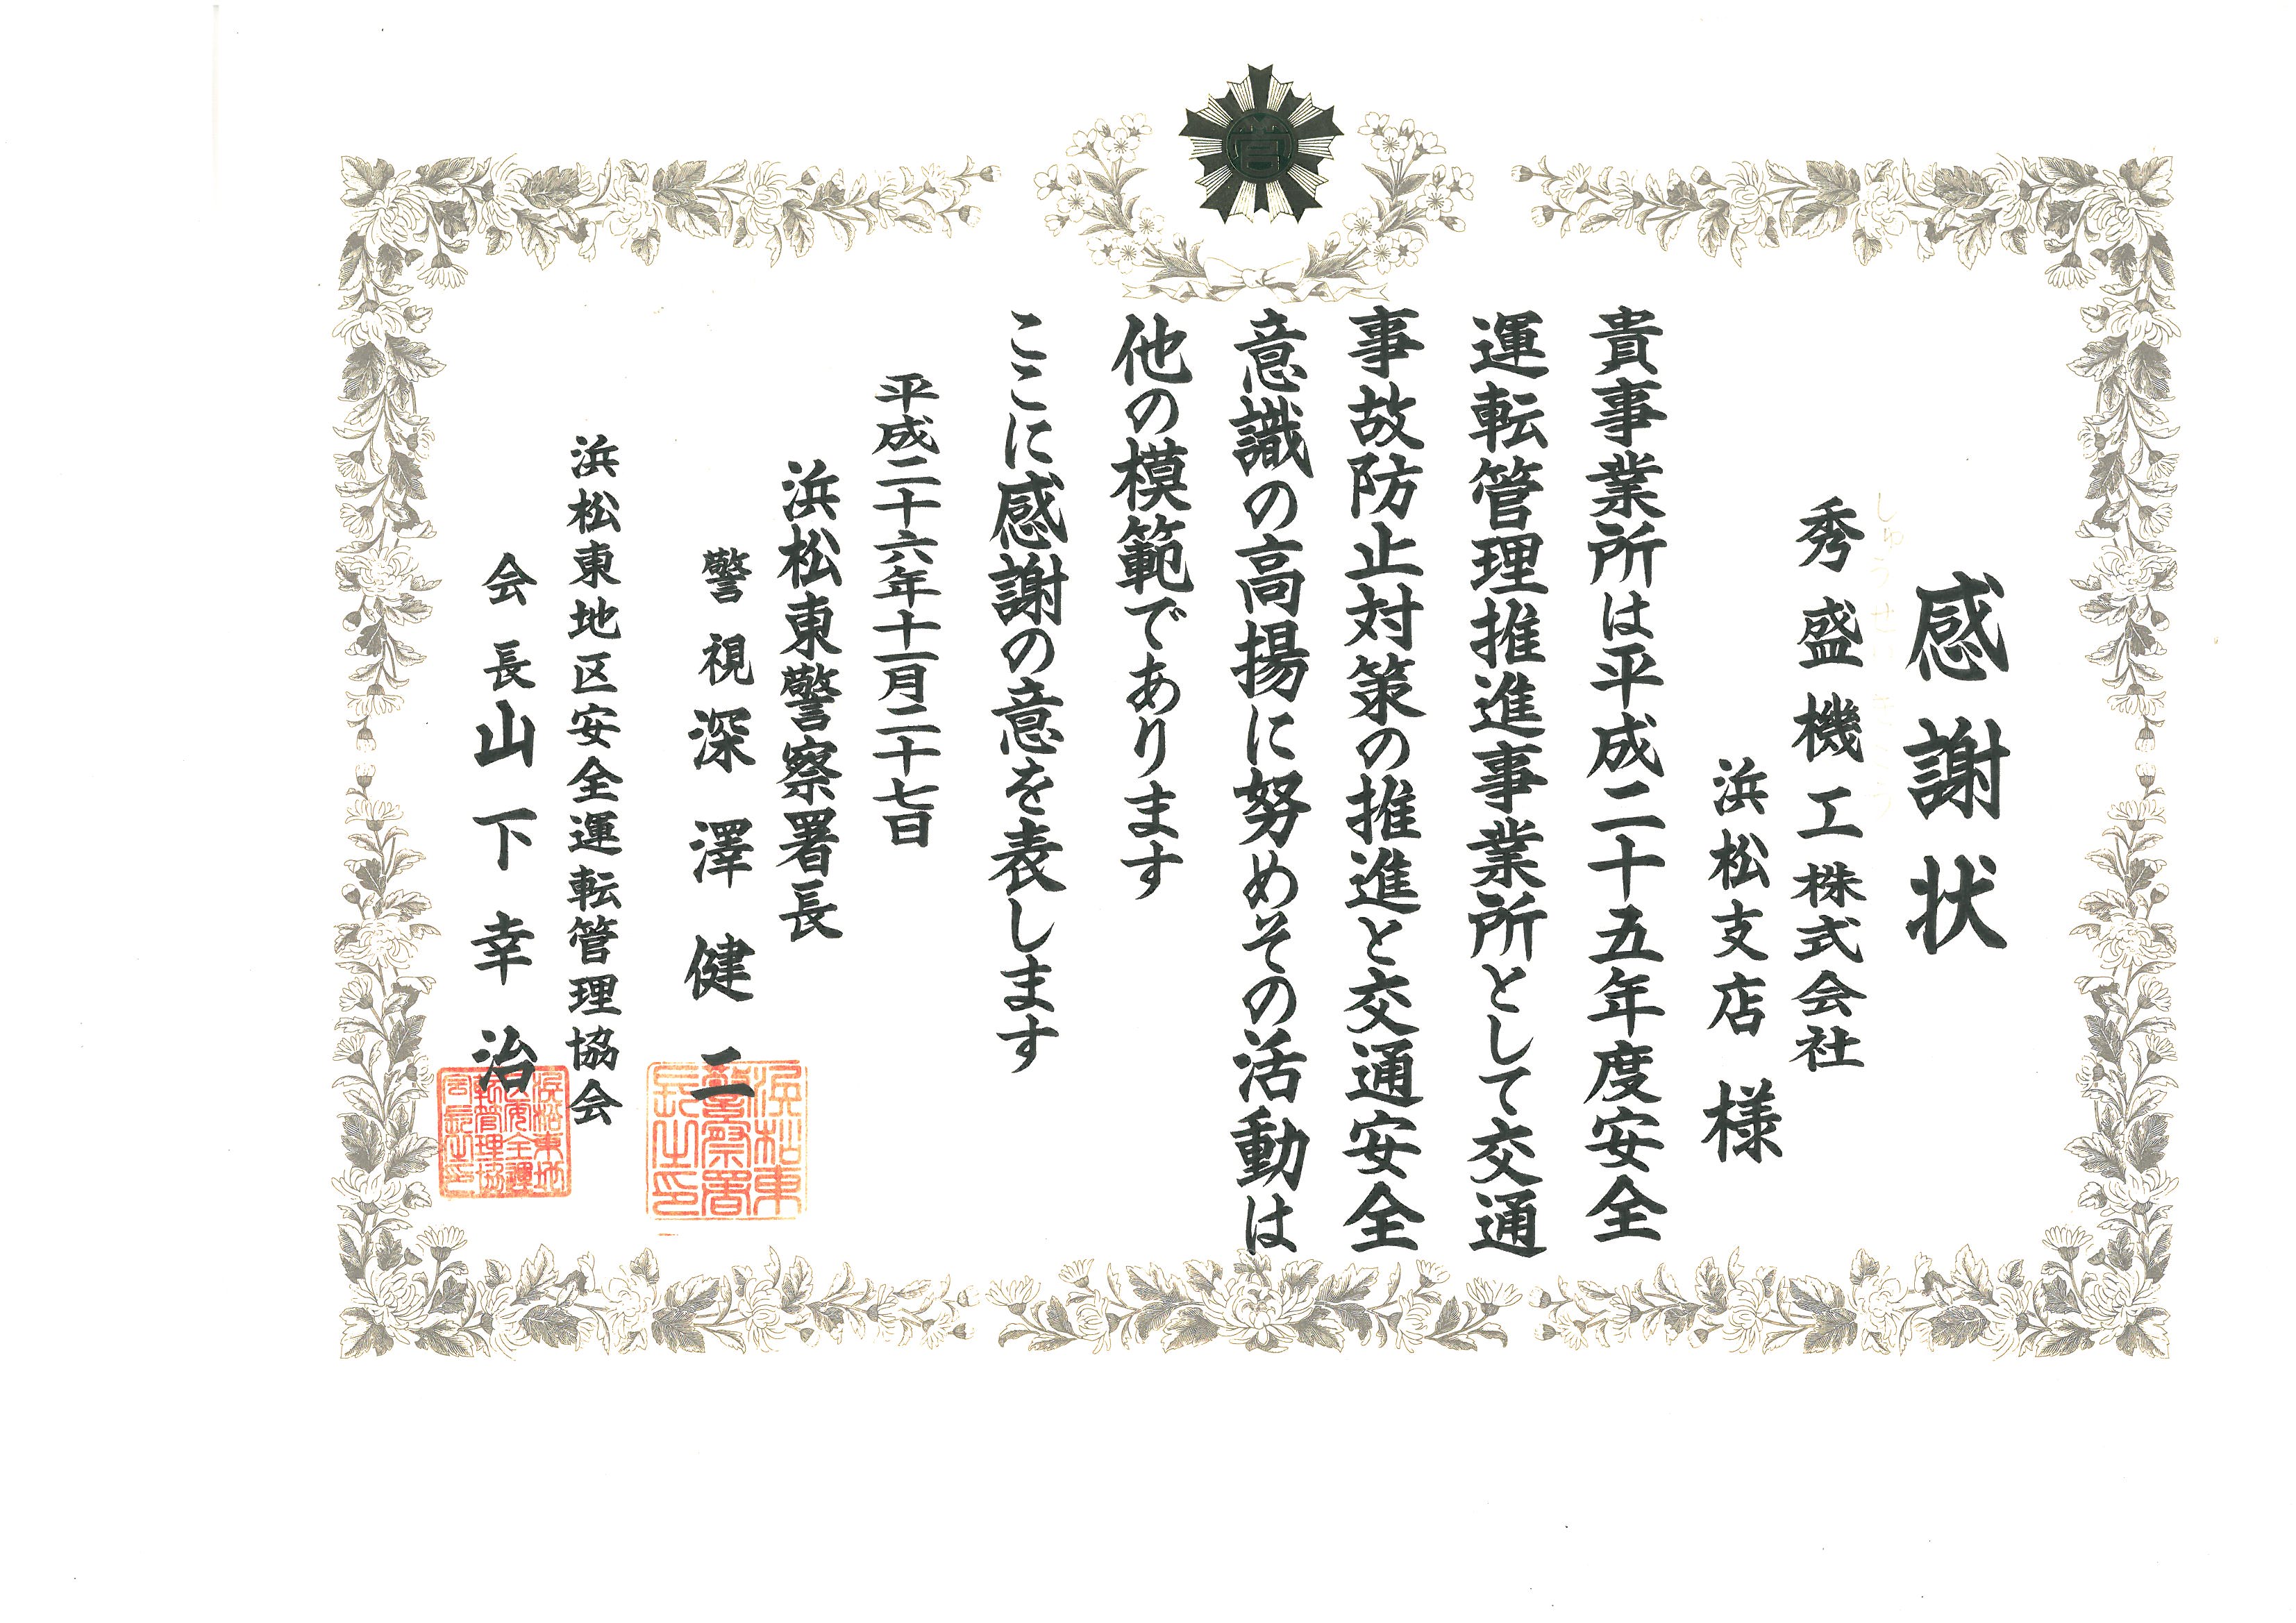 感謝状
秀盛機工株式会社
浜松支店 様
貴事業所は平成二十五年度安全
運転管理推進事業所として交通
事故防止対策の推進と交通安全
意識の高揚に努めその活動は
他の模範であります
ここに感謝の意を表します
平成二十六年十一月二十七日
浜松東警察署長
警視 深澤健二
浜松東警察署長之印
浜松東地区安全運転管理協会
会長 山下幸治
浜松東地区安全運転管理協会長之印